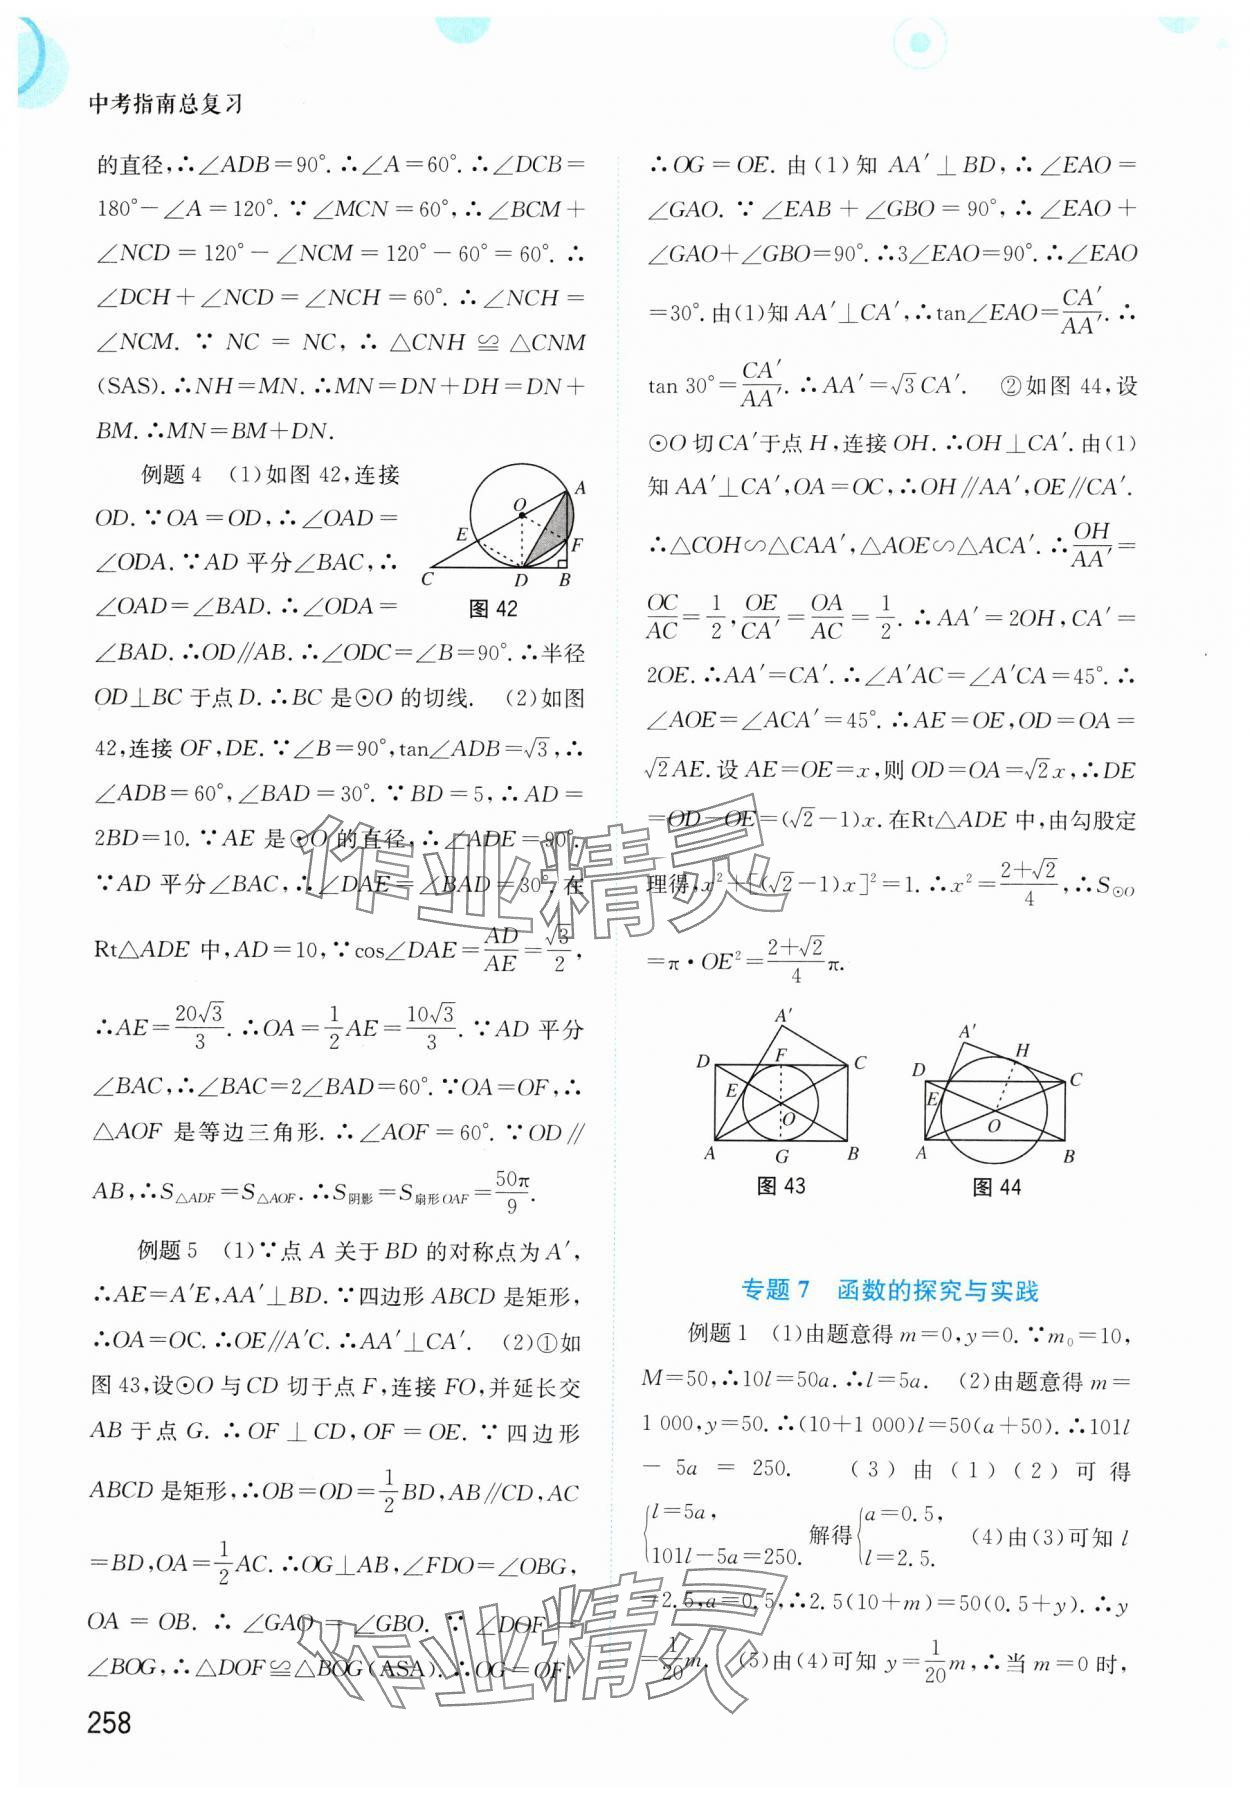 中考指南总复习
的直径,∴∠ADB=90°.∴∠A=60°.∴∠DCB=
180°-∠A=120°.∵∠MCN=60°,∴∠BCM+
∠NCD=120°-∠NCM=120°-60°=60°.∴
∠DCH+∠NCD=∠NCH=60°.∴∠NCH=
∠NCM.∵NC=NC,∴△CNH≌△CNM
(SAS).∴NH=MN.∴MN=DN+DH=DN+
BM.∴MN=BM+DN.
例题4 (1)如图42,连接
OD.∵OA=OD,∴∠OAD=
∠ODA.∵AD平分∠BAC,∴
∠OAD=∠BAD.∴∠ODA=
A
O
E
F
C
D
B
图42
∠BAD.∴OD∥AB.∴∠ODC=∠B=90°.∴半径
OD⊥BC于点D.∴BC是⊙O的切线. (2)如图
42,连接OF,DE.∵∠B=90°,tan∠ADB=√3,∴
∠ADB=60°,∠BAD=30°.∵BD=5,∴AD=
2BD=10.∵AE是⊙O的直径,∴∠ADE=90°.
∵AD平分∠BAC,∴∠DAE=∠BAD=30°.在
Rt△ADE中,AD=10,∵cos∠DAE=AD/AE=√3/2,
∴AE=20√3/3.∴OA=1/2AE=10√3/3.∵AD平分
∠BAC,∴∠BAC=2∠BAD=60°.∵OA=OF,∴
△AOF是等边三角形.∴∠AOF=60°.∵OD∥
AB,∴S△ADF=S△AOF.∴S阴影=S扇形OAF=50π/9.
例题5 (1)∵点A关于BD的对称点为A′,
∴AE=A′E,AA′⊥BD.∵四边形ABCD是矩形,
∴OA=OC.∴OE∥A′C.∴AA′⊥CA′. (2)①如
图43,设⊙O与CD切于点F,连接FO,并延长交
AB于点G.∴OF⊥CD,OF=OE.∵四边形
ABCD是矩形,∴OB=OD=1/2BD,AB∥CD,AC
=BD,OA=1/2AC.∴OG⊥AB,∠FDO=∠OBG,
OA=OB.∴∠GAO=∠GBO.∵∠DOF=
∠BOG,∴△DOF≌△BOG(ASA).∴OG=OF.
258
∴OG=OE.由(1)知AA′⊥BD,∴∠EAO=
∠GAO.∵∠EAB+∠GBO=90°,∴∠EAO+
∠GAO+∠GBO=90°.∴3∠EAO=90°.∴∠EAO
=30°.由(1)知AA′⊥CA′,∴tan∠EAO=CA′/AA′.∴
tan 30°=CA′/AA′.∴AA′=√3CA′. ②如图44,设
⊙O切CA′于点H,连接OH.∴OH⊥CA′.由(1)
知AA′⊥CA′,OA=OC,∴OH∥AA′,OE∥CA′.
∴△COH∽△CAA′,△AOE∽△ACA′.∴OH/AA′=
OC/AC=1/2,OE/CA′=OA/AC=1/2.∴AA′=2OH,CA′=
2OE.∴AA′=CA′.∴∠A′AC=∠A′CA=45°.∴
∠AOE=∠ACA′=45°.∴AE=OE,OD=OA=
√2AE.设AE=OE=x,则OD=OA=√2x,∴DE
=OD-OE=(√2-1)x.在Rt△ADE中,由勾股定
理得,x²+[(√2-1)x]²=1.∴x²=(2+√2)/4,∴S⊙O
=π·OE²=(2+√2)/4π.
A′
D
F
C
E
O
A
G
B
图43
A′
H
D
C
E
O
A
B
图44
专题7 函数的探究与实践
例题1 (1)由题意得m=0,y=0.∵m₀=10,
M=50,∴10l=50a.∴l=5a. (2)由题意得m=
1 000,y=50.∴(10+1 000)l=50(a+50).∴101l
-5a=250. (3)由(1)(2)可得
{l=5a, 101l-5a=250. 解得{a=0.5, l=2.5. (4)由(3)可知l
=2.5,a=0.5,∴2.5(10+m)=50(0.5+y).∴y
=1/20m. (5)由(4)可知y=1/20m,∴当m=0时,
作业精灵
作业精灵